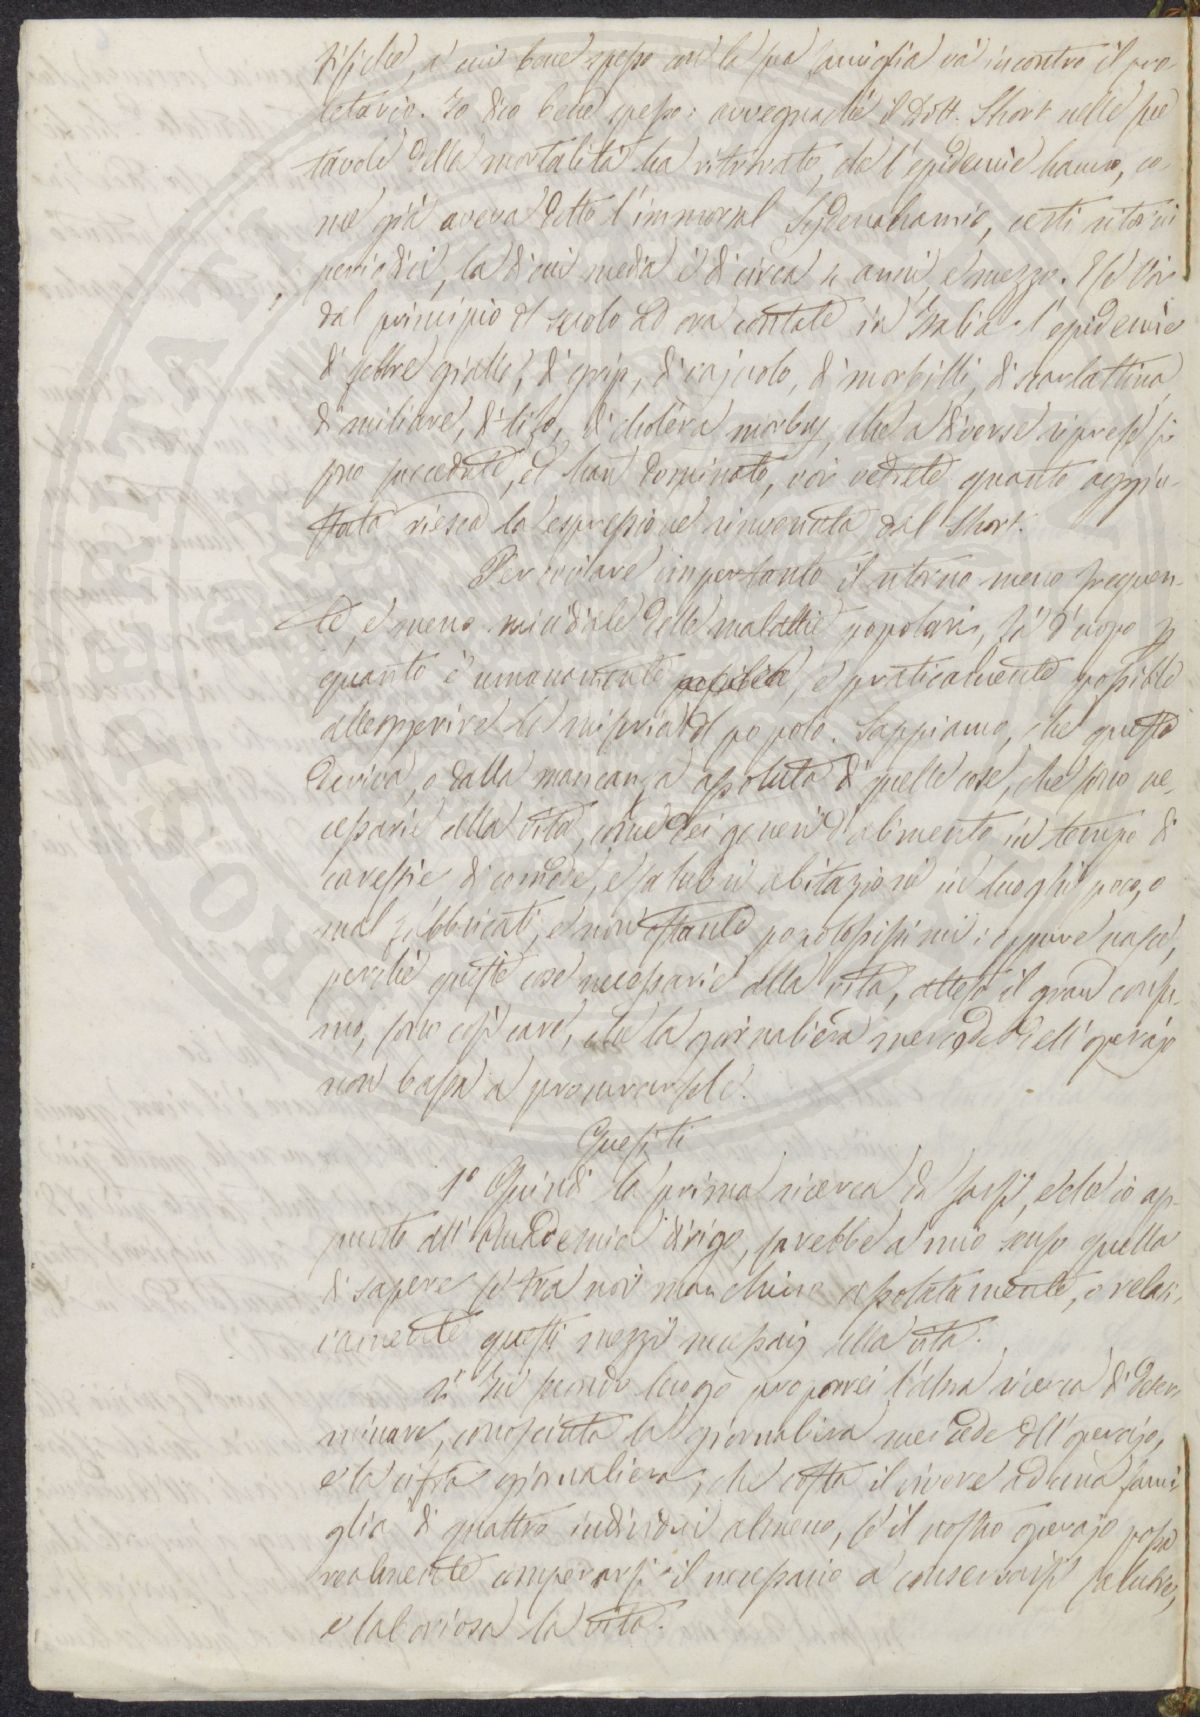 tifiche, a cui bene spesso con la sua famiglia va incontro il pro-
letario. Io dico bene spesso: avvegnachè il Dott. Short nelle sue
tavole della mortalità ha ritrovato, che l'epidemie hanno, co-
me già aveva detto l'immortal Sydenahamio, certi ritorni
periodici, la di cui media è di circa 4 anni, e mezzo. E se Voi
dal principio del secolo ad ora contate in Italia l'epidemie
di febbre gialla, di grip, di vajuolo, di morbilli, di scarlattina,
di miliare, di tifo, di choléra morbus, che a diverse riprese si
sono succedute, ed han dominato, voi vedrete quanto aggiu-
stata riesca la espressione rinvenuta dal Short.
Per ovviare impertanto il ritorno meno frequen-
te, e meno micidiale delle malattie popolari, fà d'uopo p
quanto è umanamente possibile, e praticamente possibile
alleggerire la miseria del popolo. Sappiamo, che questa
deriva, o dalla mancanza assoluta di quelle cose, che sono ne-
cessarie alla vita, come dei generi d'alimento in tempo di
carestie, di comode, e salubri abitazioni in luoghi poco, o
mal fabbricati, e non ostante popolosissimi: oppure nasce,
perchè queste cose necessarie alla vita, atteso il gran consu-
mo, sono così care, che la giornaliera mercede dell'operajo
non basta a procurarsele.
Quesiti
1° Quindi la prima ricerca da farsi, e che io ap-
punto all'Accademia dirigo, sarebbe a mio senso quella
di sapere se tra noi manchino assolutamente, o relati-
vamente questi mezzi necessarj alla vita.
2° In secondo luogo proporrei l'altra ricerca di deter-
minare, conosciuta la giornaliera mercede dell'operajo,
e la cifra giornaliera, che costa il vivere ad una fami-
glia di quattro individui almeno, se il nostro operajo possa
realmente comperarsi il necessario a conservarsi salubre,
e laboriosa la vita.